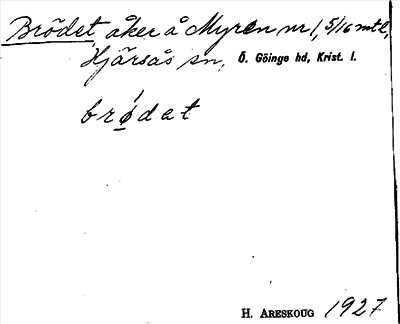 Brödet, åker å Myren nr 1, 5/16 mtl,
Hjärsås sn, Ö. Göinge hd, Krist. l.
brødat
H. ARESKOUG 1927